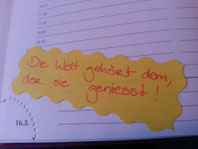 Die Welt gehört dem,
der sie geniesst!
16.3.